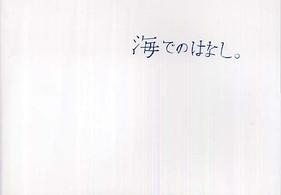 海でのはなし。